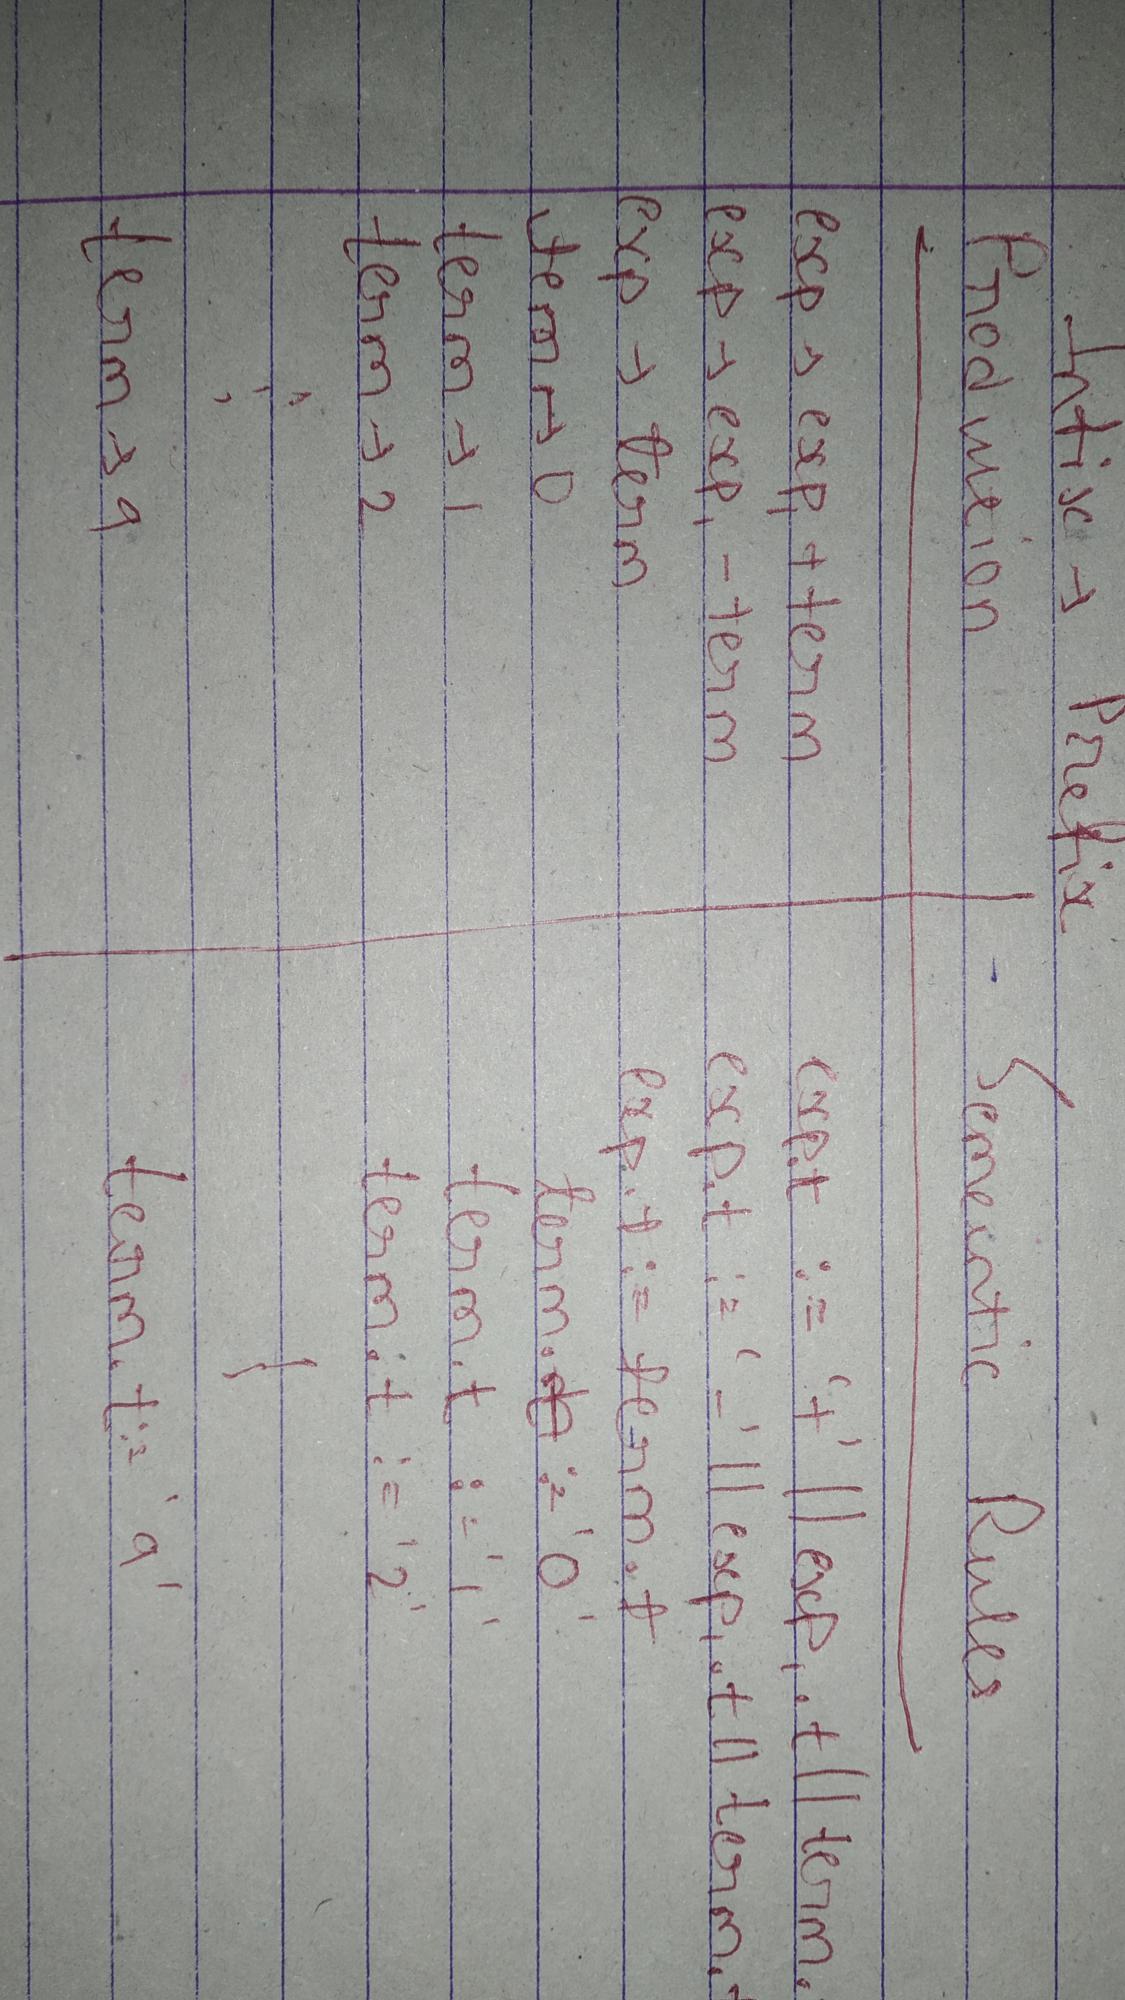 Infix → Prefix
Production Semantic Rules
exp → exp₁ + term exp.t := '+' || exp₁.t || term.
exp → exp₁ - term exp.t := '-' || exp₁.t || term.t
exp → term exp.t := term.t
term → 0 term.t := '0'
term → 1 term.t := '1'
term → 2 term.t := '2'
term → 9 term.t := '9'